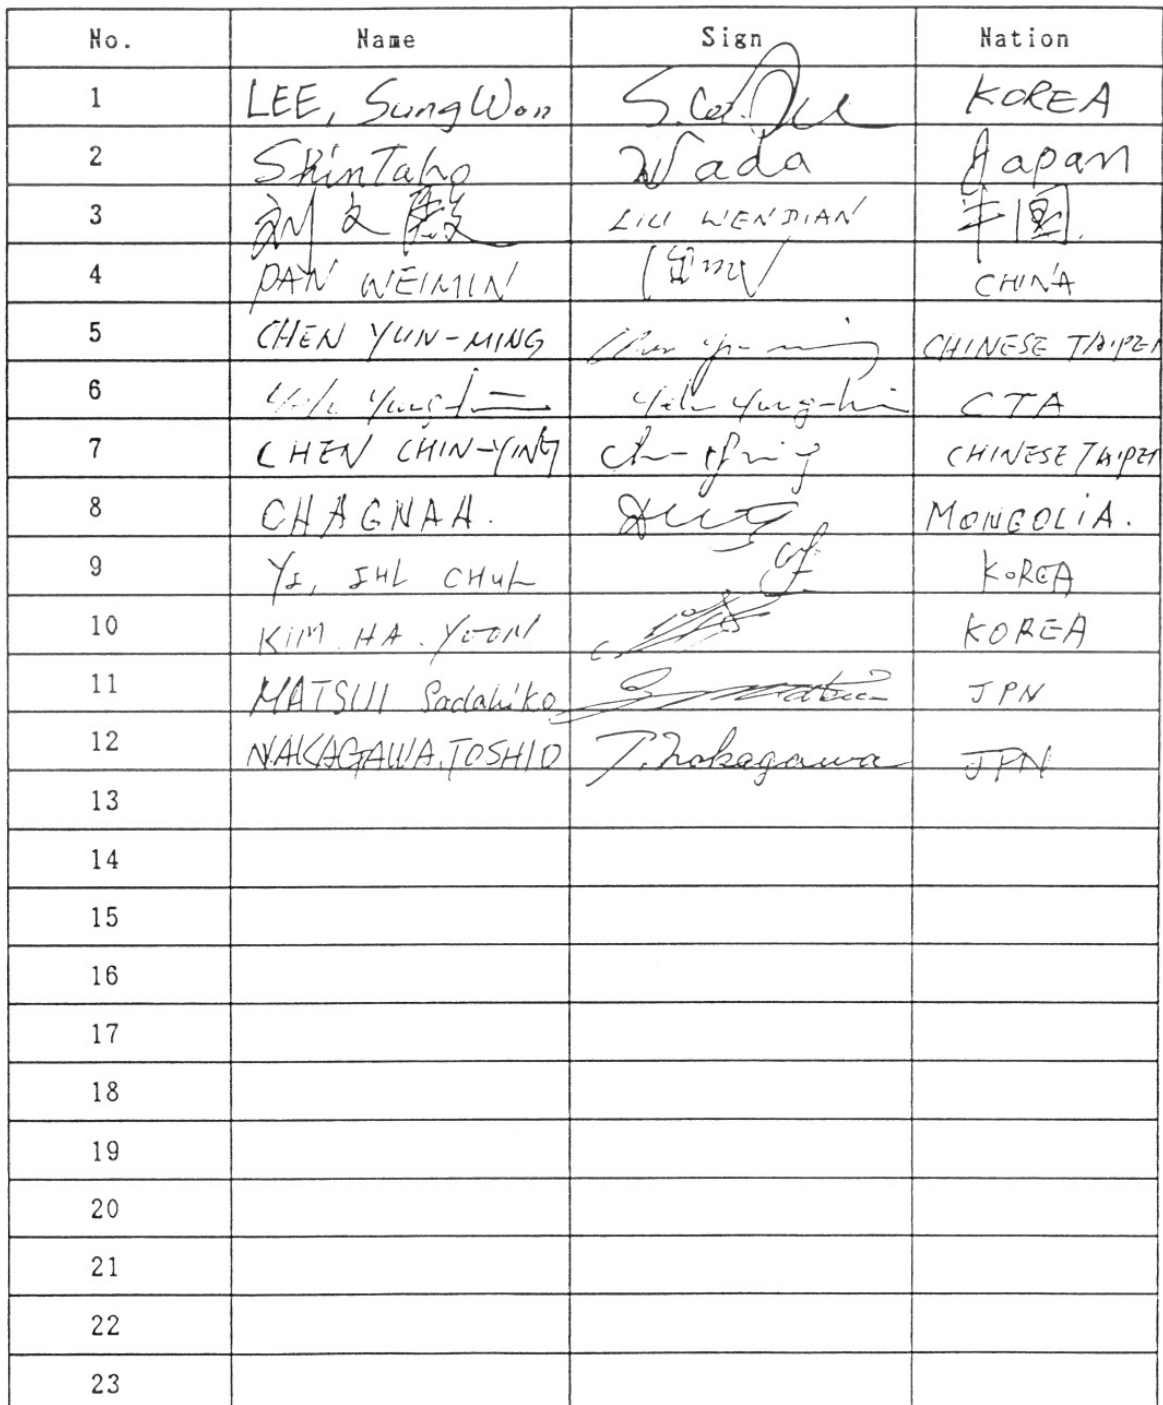 No. Name Sign Nation
1 LEE, Sung Won KOREA
2 ShinTaho Wada Japan
3 刘文殿 LIU WENDIAN 中國
4 PAN WEIMIN CHINA
5 CHEN YUN-MING CHINESE TAIPEI
6 Yeh Yung- Yeh Yung-hui CTA
7 CHEN CHIN-YING CHINESE TAIPEI
8 CHAGNAA. MONGOLIA.
9 YI, SUL CHUL KOREA
10 KIM. HA. YOON KOREA
11 MATSUI Sadahiko JPN
12 NAKAGAWA. TOSHIO T. Nakagawa JPN
13
14
15
16
17
18
19
20
21
22
23